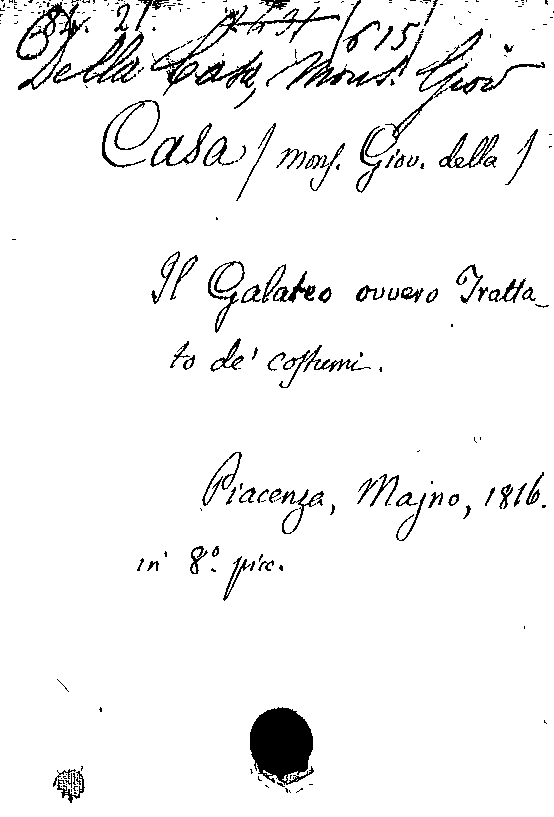 84. 21. 615
Della Casa, Mons. Giov
Casa / monſ. Giov. della /
Il Galateo ovvero Tratta_
to de' coſtumi.
Piacenza, Majno, 1816.
in 8.° picc.